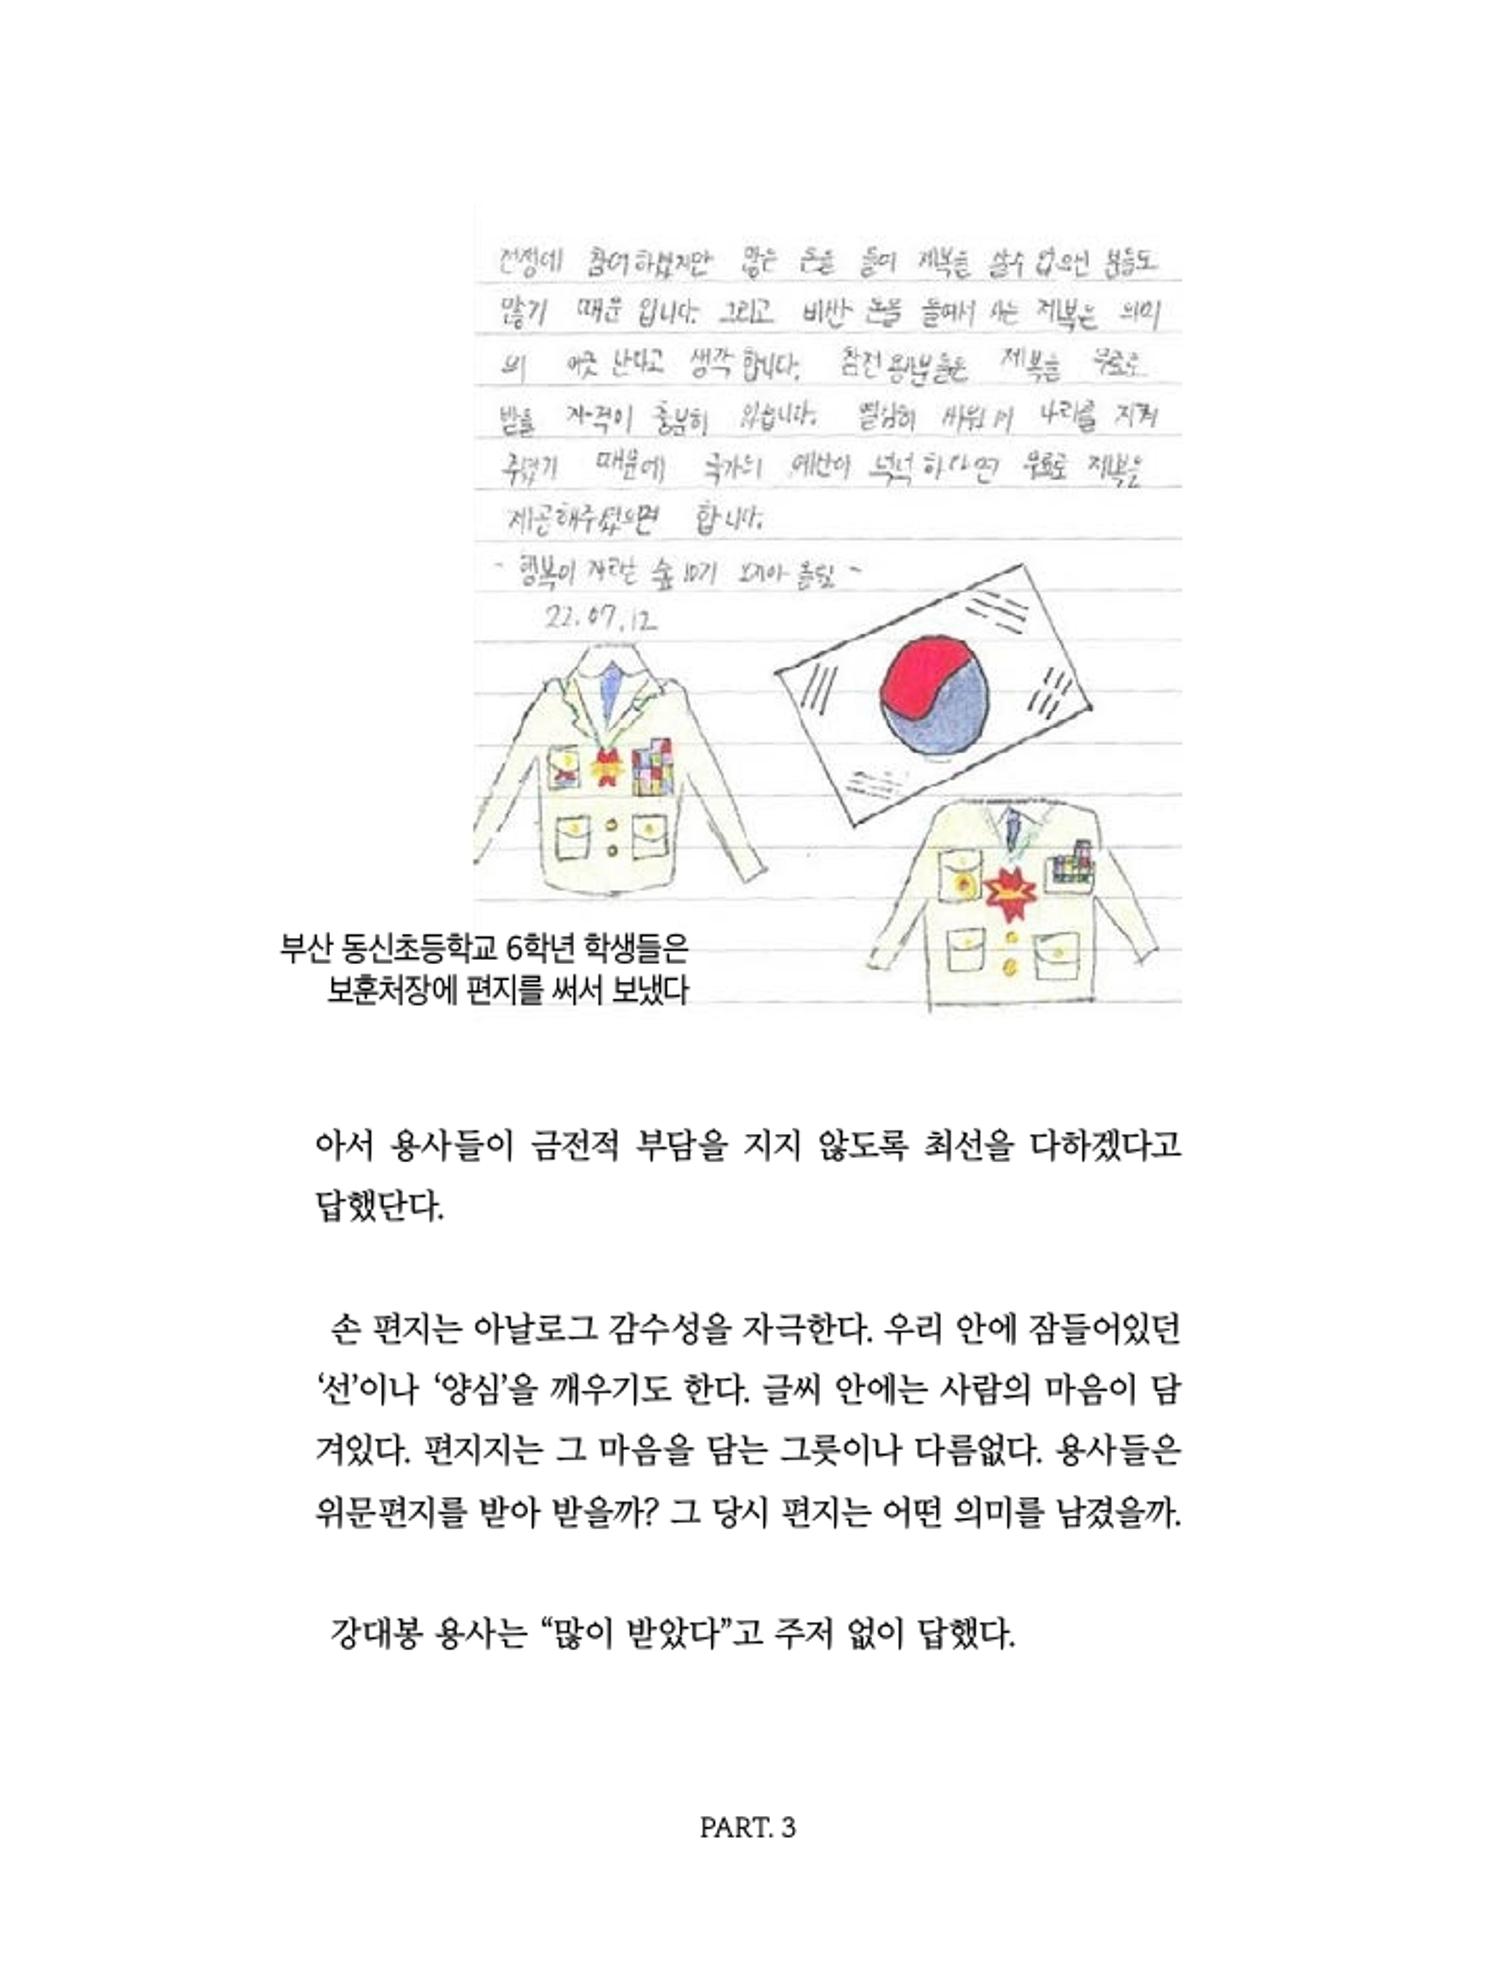 전쟁에 참여하셨지만 많은 돈을 들여 제복을 살수 없으신 분들도
많기 때문 입니다. 그리고 비싼 돈을 들여서 사는 제복은 의미
의 어긋 난다고 생각 합니다. 참전 용사분들은 제복을 무료로
받을 자격이 충분히 있습니다. 열심히 싸워서 나라를 지켜
주셨기 때문에 국가의 예산이 넉넉 하다면 무료로 제복을
제공해주셨으면 합니다.
- 행복이 자라는 숲 10기 올림 -
22.07.12
부산 동신초등학교 6학년 학생들은
보훈처장에 편지를 써서 보냈다
아서 용사들이 금전적 부담을 지지 않도록 최선을 다하겠다고
답했단다.
손 편지는 아날로그 감수성을 자극한다. 우리 안에 잠들어있던
‘선’이나 ‘양심’을 깨우기도 한다. 글씨 안에는 사람의 마음이 담
겨있다. 편지지는 그 마음을 담는 그릇이나 다름없다. 용사들은
위문편지를 받아 받을까? 그 당시 편지는 어떤 의미를 남겼을까.
강대봉 용사는 “많이 받았다”고 주저 없이 답했다.
PART. 3